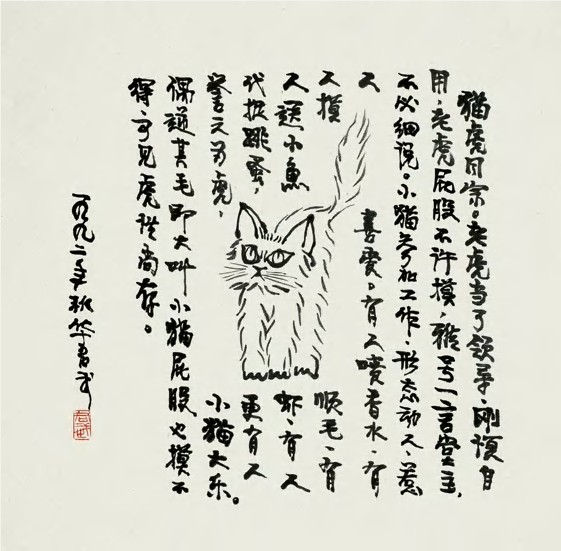 猫虎同宗。老虎当了领导，刚愎自
用，老虎屁股不许摸，雅号一言堂主，
不必细说。小猫参加工作，形态动人，惹
人喜爱。有人喷香水，有
人摸顺毛，有
人送小鱼虾，有人
代捉跳蚤，更有人
誉之为虎，小猫大乐。
偶逆其毛即大叫，小猫屁股也摸不
得，可见虎性尚存。
一九九二年秋华君武
君武